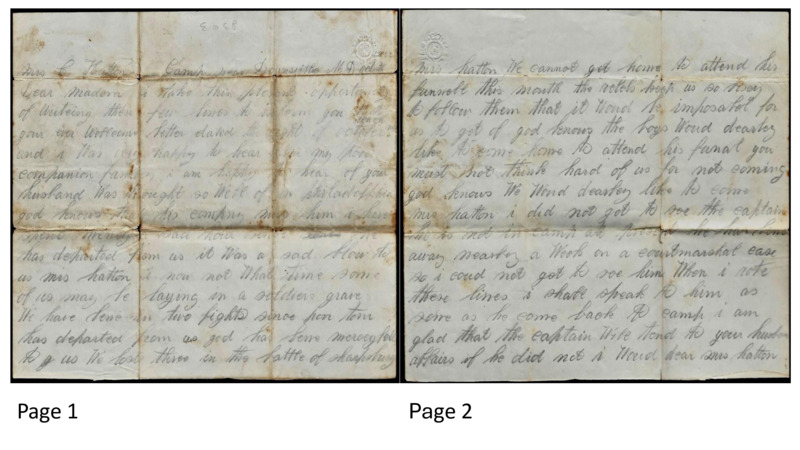 Mrs C Hatton Camp near Downsville M.D
Dear Madam i take this plesent oppertunity
of writeing these few lines to inform you
your ever wellcome letter dated the eight of october
and i Was very happy to hear from my poor
companion family i am happy to hear of your
husband Was thought so Well of in philadelphia
god knows his company miss him i have
spent many
has departed from us it Was a sad blow to
us mis hatton i now not What time some
of us may be laying in a soldiers grave
We have bene in two fights since poor tom
has departed from us god has bene
to us We lost three in the battle of sharpsburg
mrs hatton We cannot get home to attend his
funnelt this month the rebels keep us so bussy
to follow them that it Woud be imposabel for
us to get of god knows the boys Woud dearley
like to come home to attend his funal you
must not think hard of us for not coming
god knows We Woud dearley like to come
mis hatton i did not get to see the captain
he is not in camp at present he has bene
away nearley a Week on a courtmarshal case
so i coud not get to see him When i rote
these lines i shall speak to him as
sone as he come back to camp i am
glad that the captain Will tend to your husban
affairs if he did not i Woud dear mrs hatton
Page 1
Page 2